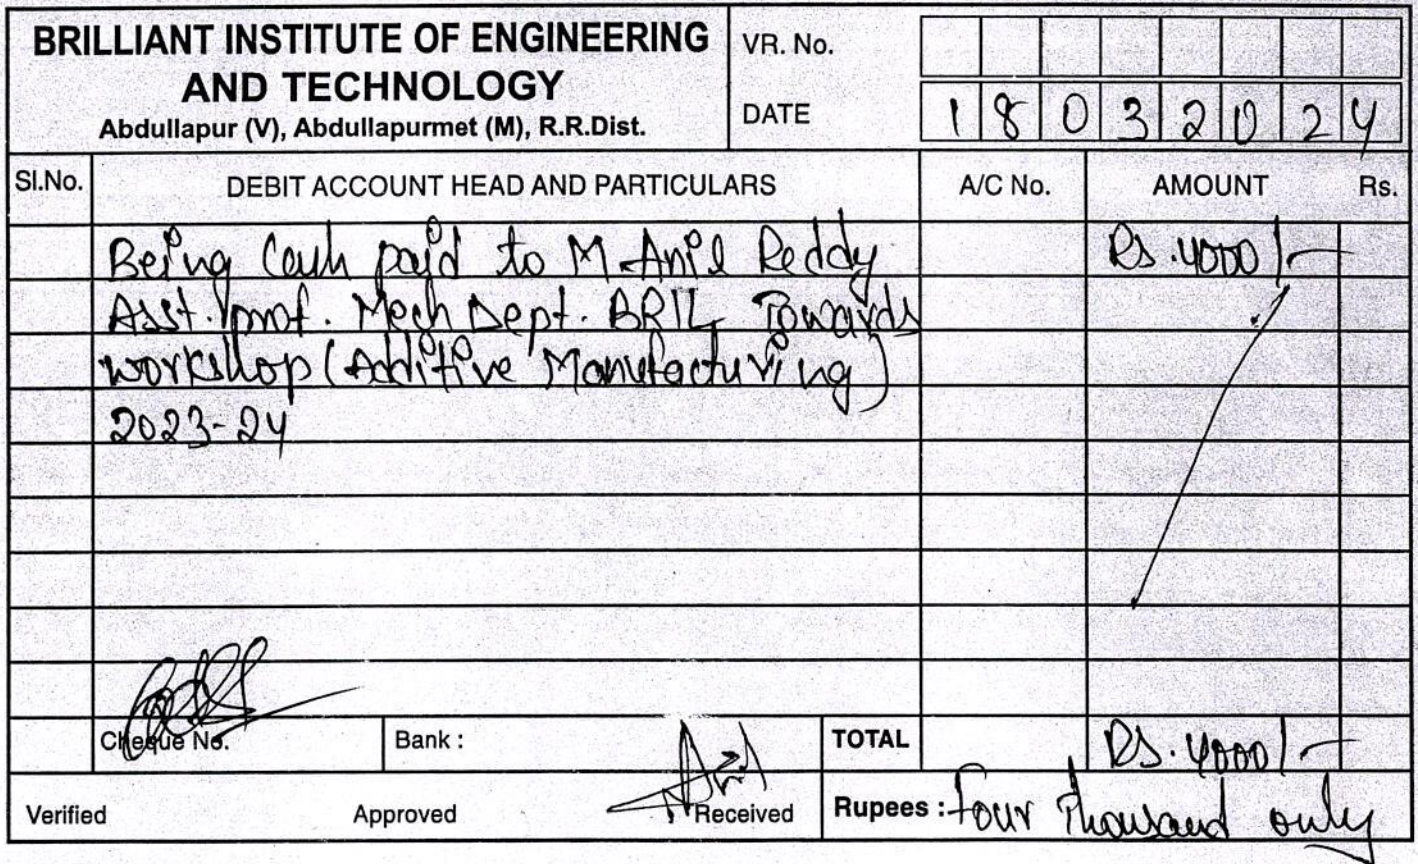 BRILLIANT INSTITUTE OF ENGINEERING
AND TECHNOLOGY
Abdullapur (V), Abdullapurmet (M), R.R.Dist.
VR. No.
DATE 18032024
Sl.No. DEBIT ACCOUNT HEAD AND PARTICULARS A/C No. AMOUNT Rs.
Being Cash paid to M. Anil Reddy Rs. 4000/-
Asst. prof. Mech Dept. BRIL Towards
workshop (Additive Manufacturing)
2023-24
Cheque No. Bank : TOTAL Rs. 4000/-
Verified Approved Received Rupees : Four Thousand only